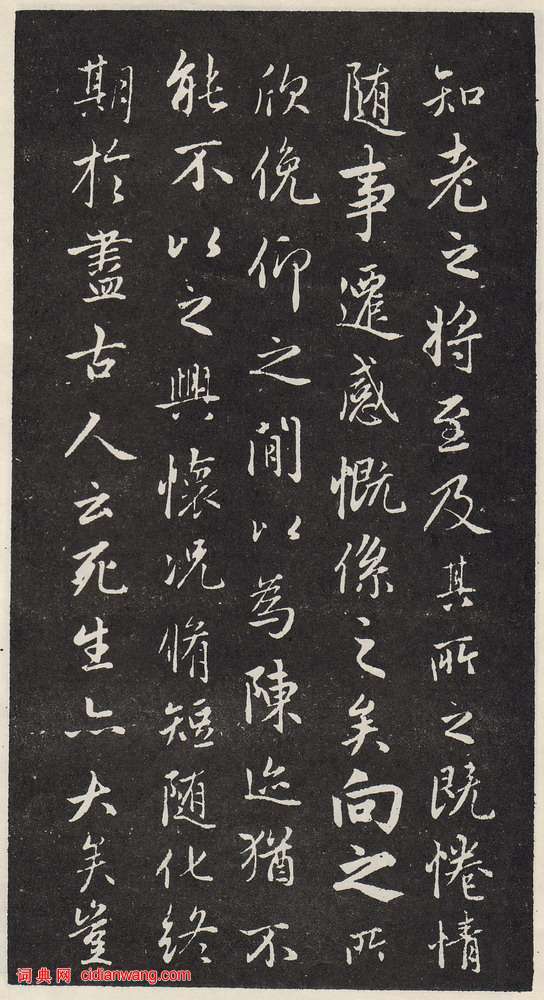 知老之將至及其所之既惓情
随事遷感慨係之矣向之所
欣俛仰之間以為陳迹猶不
能不以之興懷况脩短随化終
期於盡古人云死生亦大矣豈
词典网 cidianwang.com